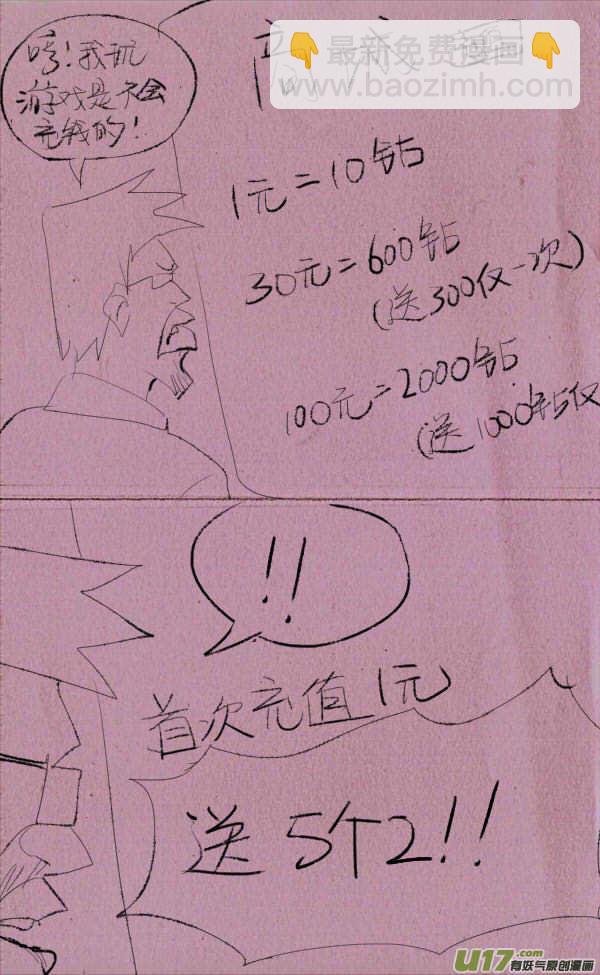 哼！我玩
游戏是不会
充钱的！
最新免费漫画
www.baozimh.com
1元=10钻
30元=600钻
(送300仅一次)
100元=2000钻
(送1000钻仅
!!
首次充值1元
送5个2!!
U17.com
有妖气原创漫画